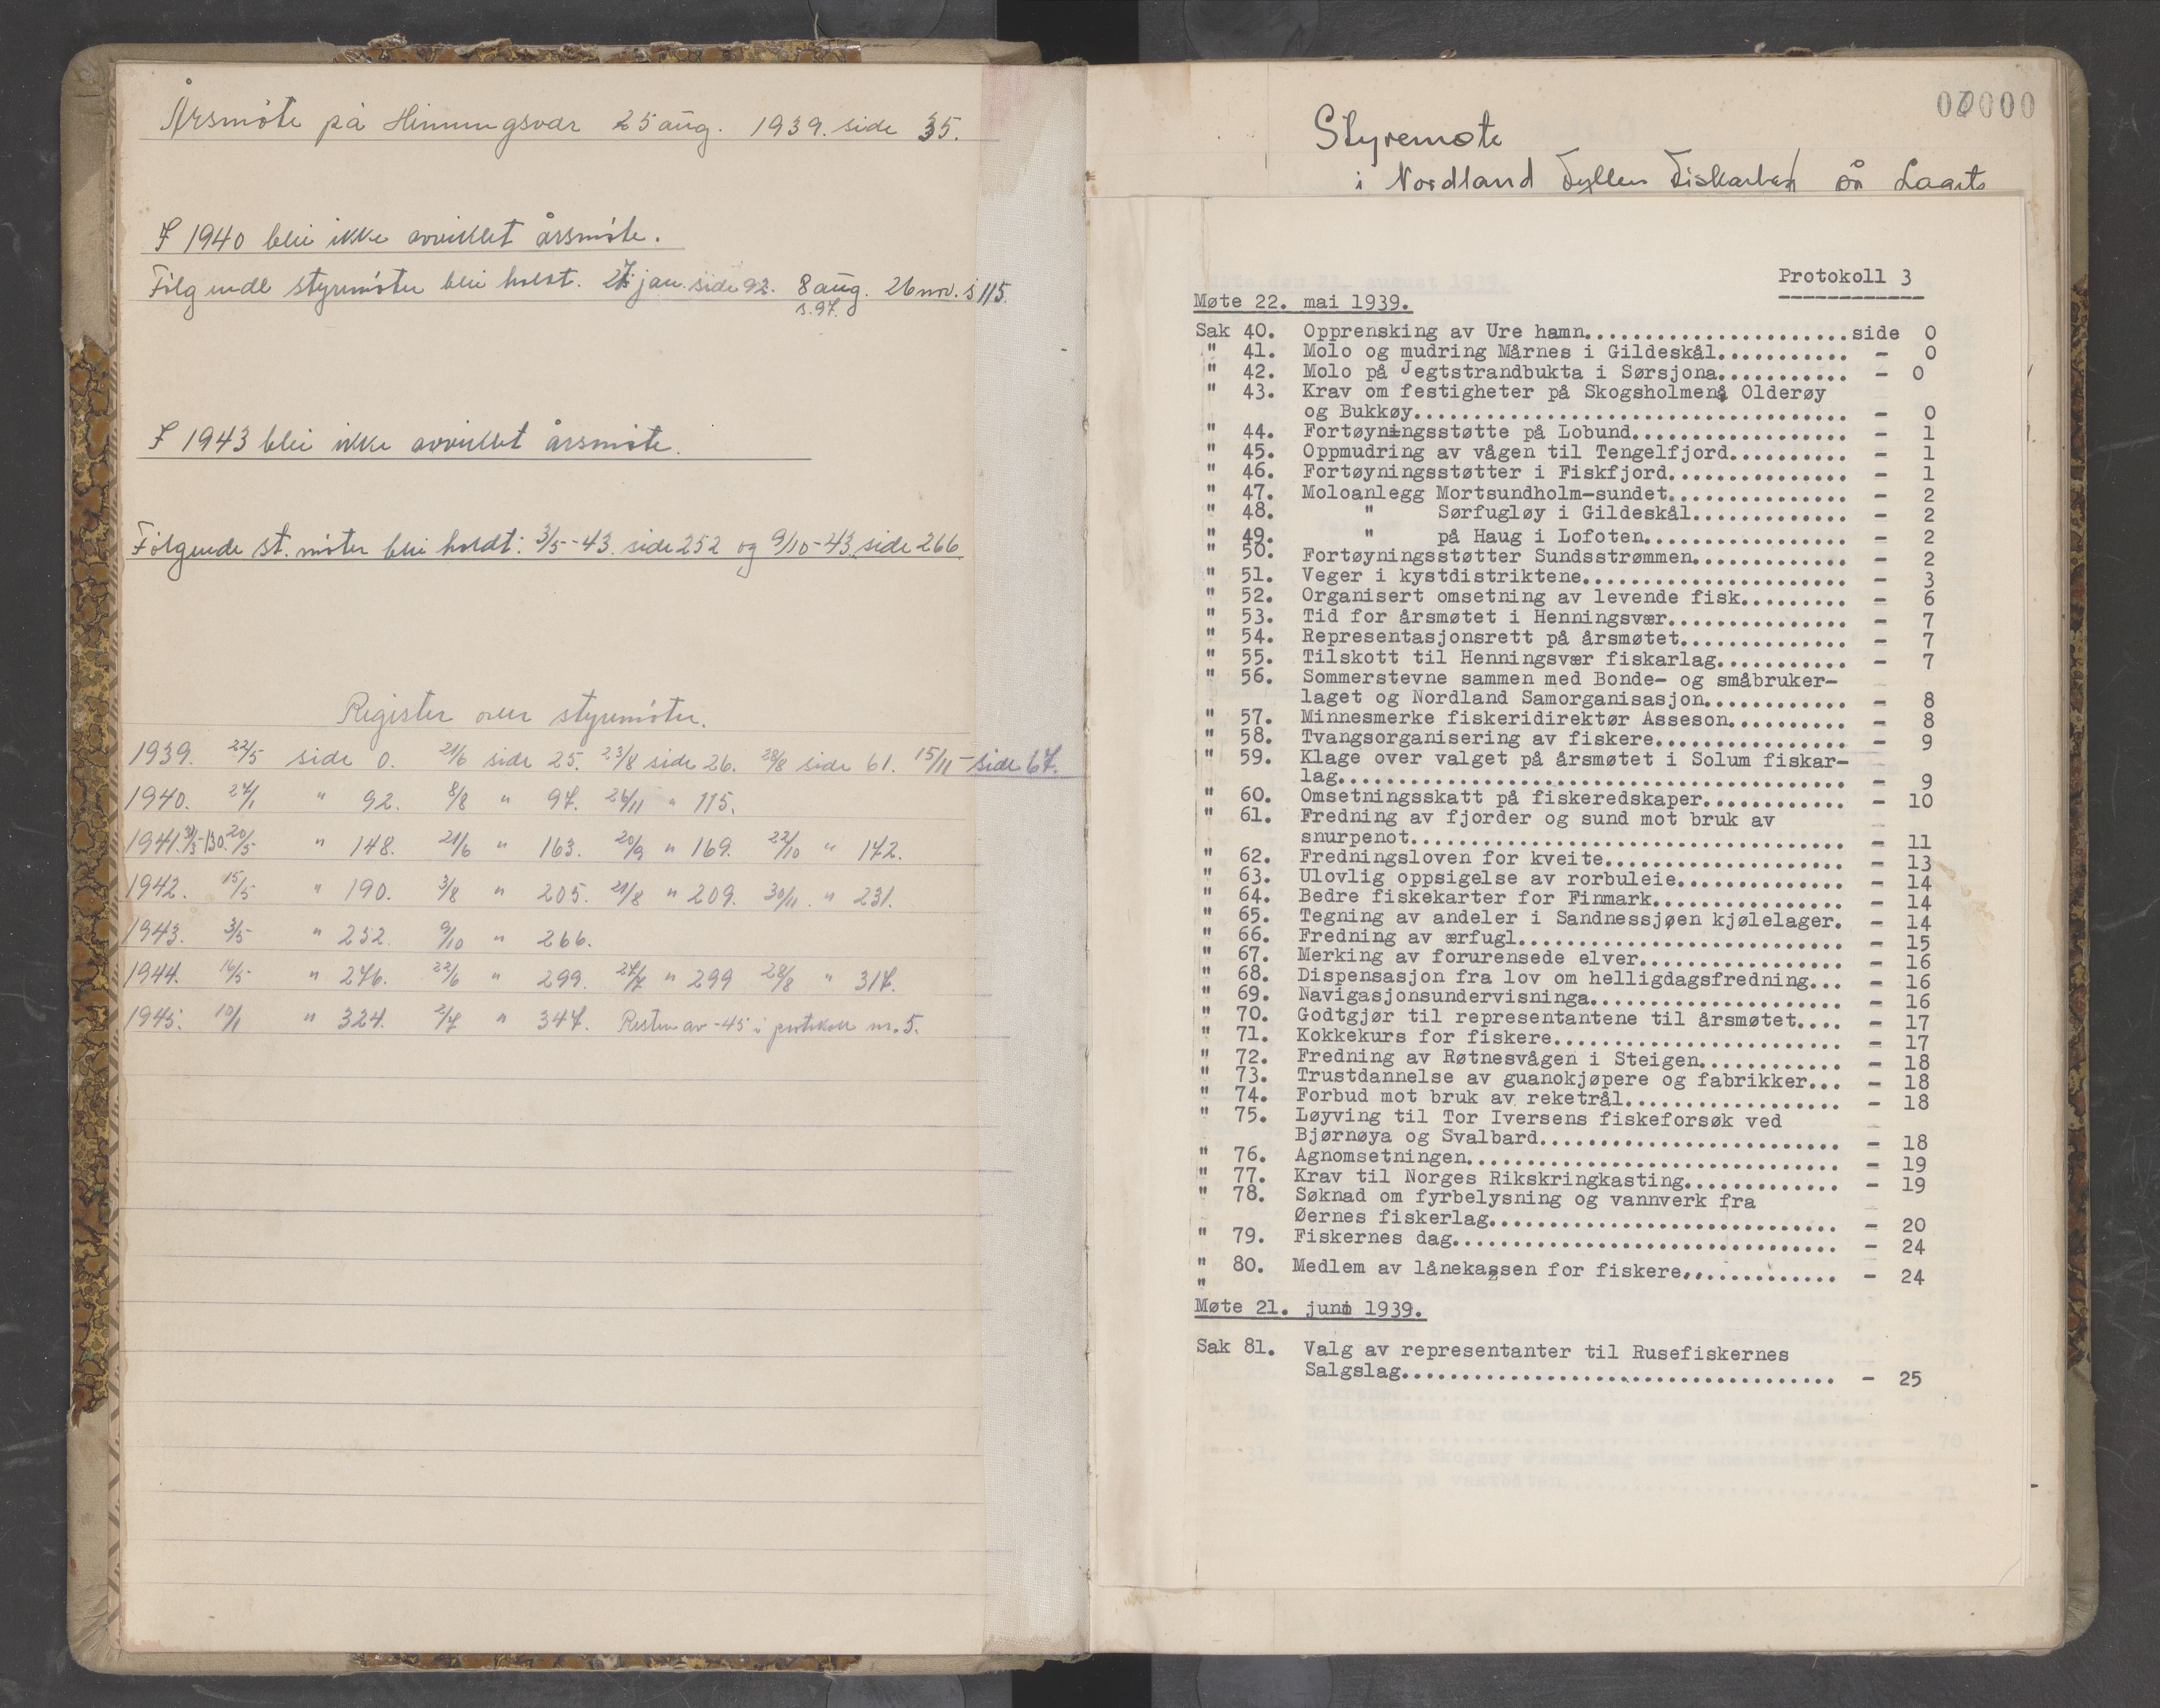 Årsmöte på Henningsvær 25 aug. 1939. side 35.
I 1940 blei ikke avviklet årsmöte.
Fölgende styremöter blei holdt. 27. jan. side 92. 8 aug. 26 nov. s 115.
s. 97.
I 1943 blei ikke avviklet årsmöte.
Fölgende st. möter blei holdt: 3/5-43. side 252 og 9/10-43. side 266
Register over styremöter.
1939. 22/5 side 0. 21/6 side 25. 23/8 side 26. 28/8 side 61. 15/11 - side 67.
1940. 27/1 " 92. 8/8 " 97. 26/11 " 115.
1941. 31/3-130. 20/5 " 148. 21/6 " 163. 20/9 " 169. 22/10 " 172.
1942. 15/5 " 190. 3/8 " 205. 21/8 " 209. 30/11. " 231.
1943. 3/5 " 252. 9/10 " 266.
1944. 16/5 " 276. 22/6 " 299. 27/7 " 299 28/8 " 317.
1945. 10/1 " 324. 2/7 " 347. Resten av -45 i protokoll nr. 5.
00000
Styremøte
i Nordland Fylkes Fiskarlag
Protokoll 3
Møte 22. mai 1939.
Sak 40. Opprensking av Ure hamn......................side 0
" 41. Molo og mudring Mårnes i Gildeskål........... - 0
" 42. Molo på Jegtstrandbukta i Sørsjona........... - 0
" 43. Krav om festigheter på Skogsholmenå Olderøy
og Bukkøy.................................... - 0
" 44. Fortøyningsstøtte på Lobund.................. - 1
" 45. Oppmudring av vågen til Tengelfjord.......... - 1
" 46. Fortøyningsstøtter i Fiskfjord............... - 1
" 47. Moloanlegg Mortsundholm-sundet............... - 2
" 48. " Sørfugløy i Gildeskål............. - 2
" 49. " på Haug i Lofoten................. - 2
" 50. Fortøyningsstøtter Sundsstrømmen............. - 2
" 51. Veger i kystdistriktene...................... - 3
" 52. Organisert omsetning av levende fisk......... - 6
" 53. Tid for årsmøtet i Henningsvær............... - 7
" 54. Representasjonsrett på årsmøtet.............. - 7
" 55. Tilskott til Henningsvær fiskarlag........... - 7
" 56. Sommerstevne sammen med Bonde- og småbruker-
laget og Nordland Samorganisasjon............ - 8
" 57. Minnesmerke fiskeridirektør Asseson.......... - 8
" 58. Tvangsorganisering av fiskere................ - 9
" 59. Klage over valget på årsmøtet i Solum fiskar-
lag.......................................... - 9
" 60. Omsetningsskatt på fiskeredskaper............ - 10
" 61. Fredning av fjorder og sund mot bruk av
snurpenot.................................... - 11
" 62. Fredningsloven for kveite.................... - 13
" 63. Ulovlig oppsigelse av rorbuleie.............. - 14
" 64. Bedre fiskekarter for Finmark................ - 14
" 65. Tegning av andeler i Sandnessjøen kjølelager. - 14
" 66. Fredning av ærfugl........................... - 15
" 67. Merking av forurensede elver................. - 16
" 68. Dispensasjon fra lov om helligdagsfredning... - 16
" 69. Navigasjonsundervisninga..................... - 16
" 70. Godtgjør til representantene til årsmøtet.... - 17
" 71. Kokkekurs for fiskere........................ - 17
" 72. Fredning av Røtnesvågen i Steigen............ - 18
" 73. Trustdannelse av guanokjøpere og fabrikker... - 18
" 74. Forbud mot bruk av reketrål.................. - 18
" 75. Løyving til Tor Iversens fiskeforsøk ved
Bjørnøya og Svalbard......................... - 18
" 76. Agnomsetningen............................... - 19
" 77. Krav til Norges Rikskringkasting............. - 19
" 78. Søknad om fyrbelysning og vannverk fra
Øernes fiskerlag............................. - 20
" 79. Fiskernes dag................................ - 24
" 80. Medlem av lånekassen for fiskere............. - 24
"
Møte 21. juni 1939.
Sak 81. Valg av representanter til Rusefiskernes
Salgslag.................................... - 25